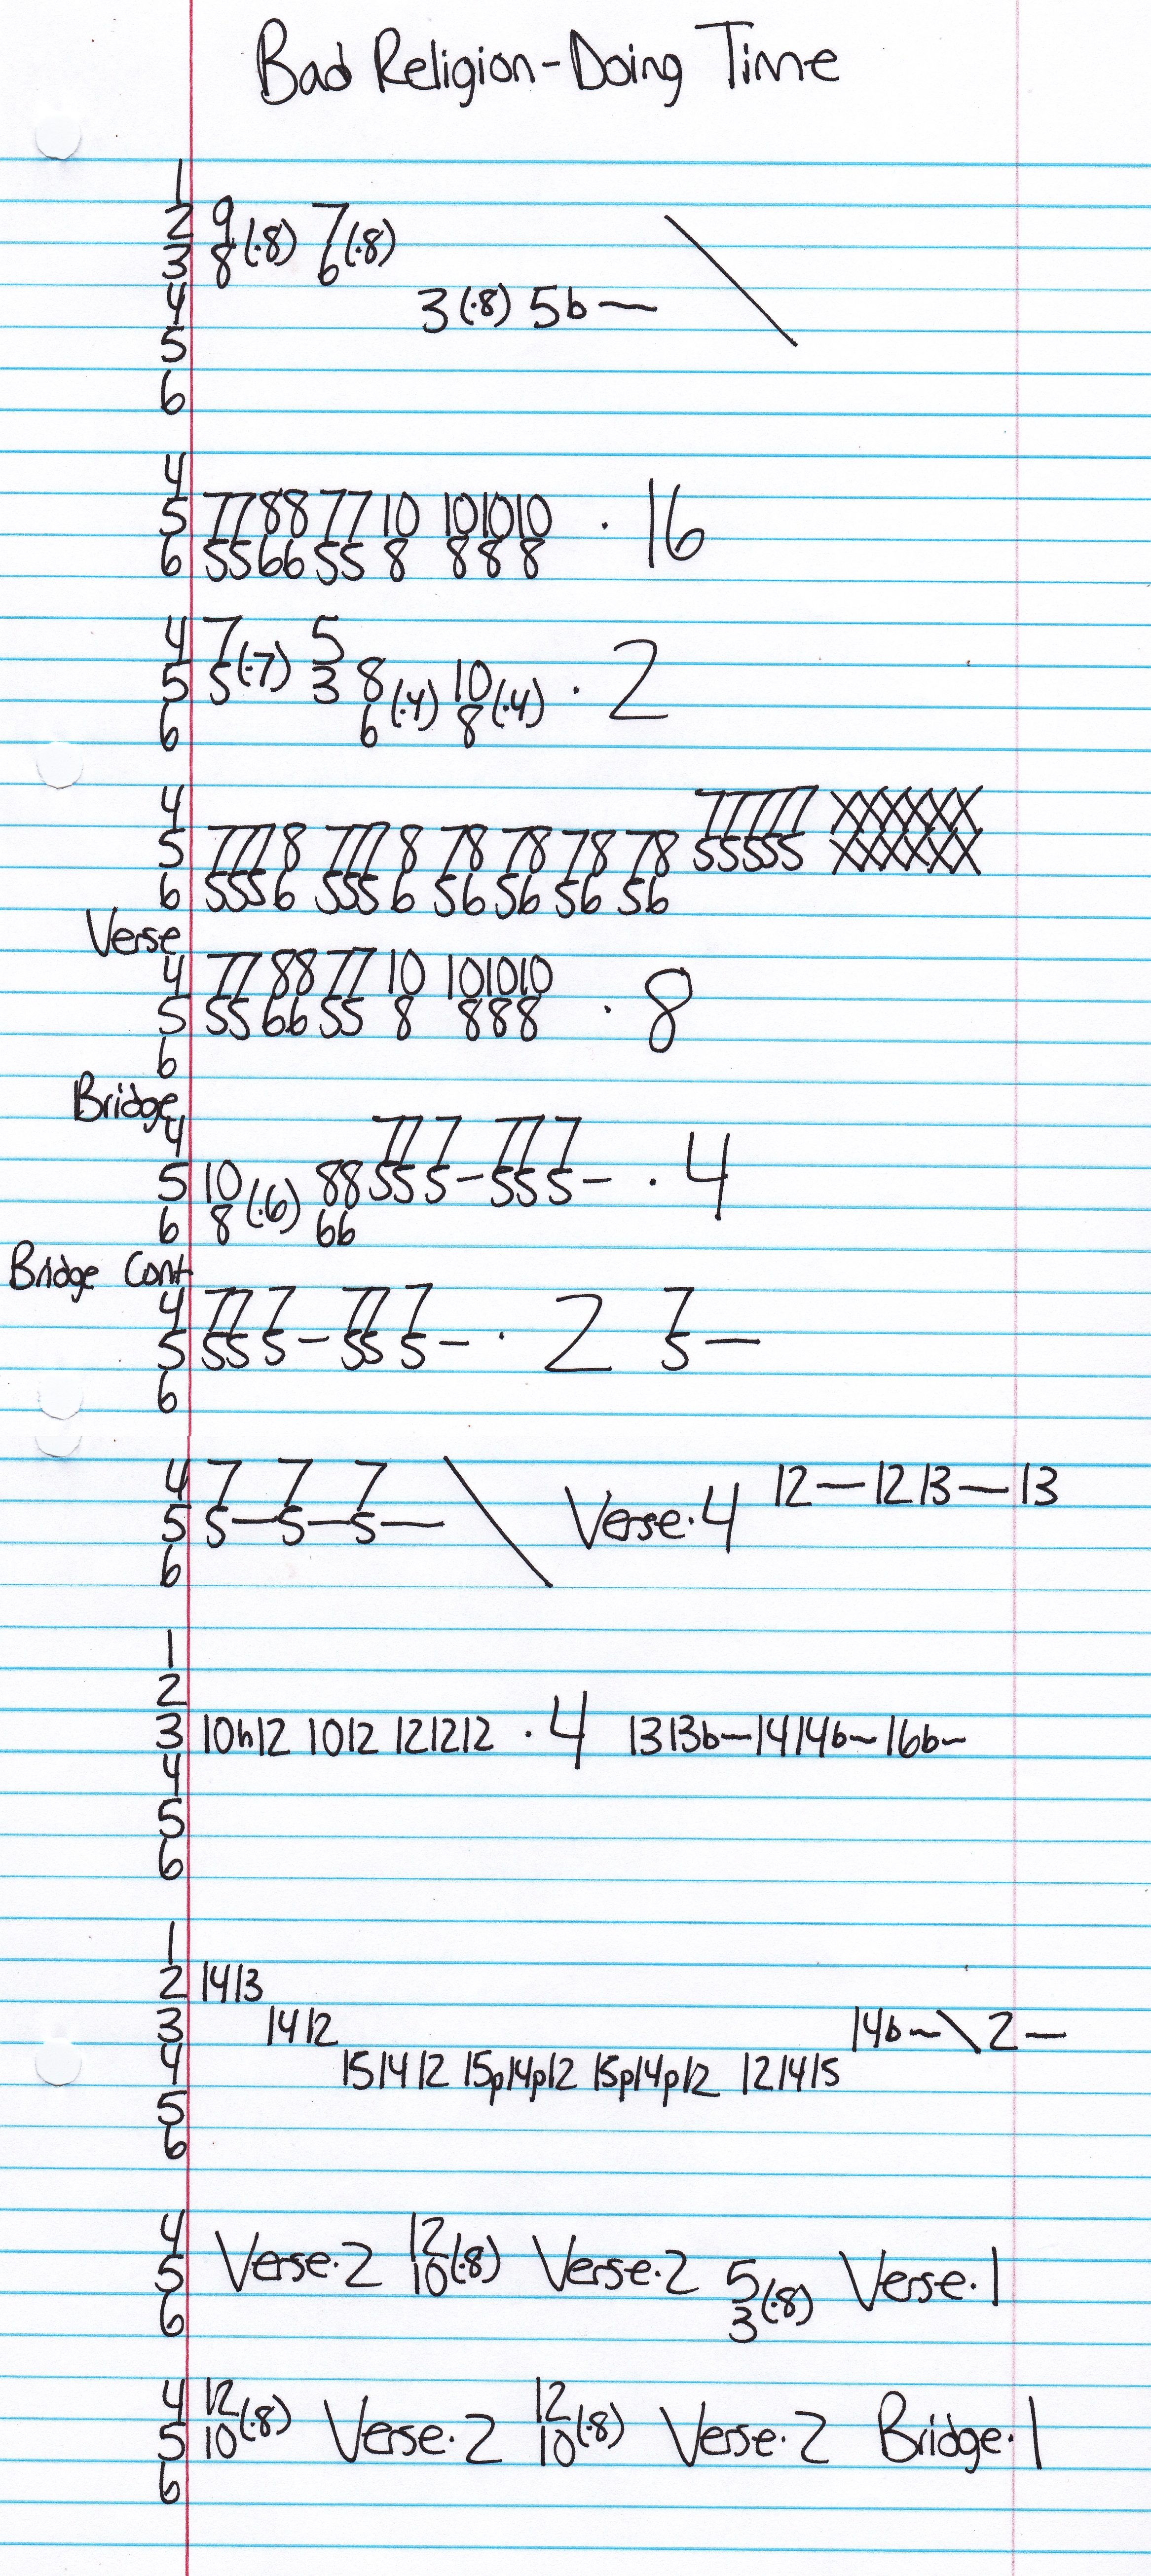 Bad Religion-Doing Time
1
2 9 (·8) 7 (·8)
3 8 6
4 3 (·8) 5b — \
5
6
4
5 77 88 77 10 10 10 10 · 16
6 55 66 55 8 8 8 8
4 7 (·7) 5
5 5 3 8 (·4) 10 (·4) · 2
6 6 8
4 77777 XXXXXX
5 777 8 777 8 78 78 78 78 55555 XXXXXX
6 555 6 555 6 56 56 56 56
Verse
4 77 88 77 10 10 10 10 · 8
5 55 66 55 8 8 8 8
6
Bridge
4 777 7 777 7
5 10 (·6) 88 555 5 - 555 5 - · 4
6 8 66
Bridge Cont
4 777 7 777 7 2 7
5 555 5 - 555 5 - · 5 —
6
4 7 7 7 \ Verse·4 12—12 13—13
5 5—5—5—
6
1
2
3 10h12 1012 121212 ·4 1313b—1414b—16b—
4
5
6
1
2 1413
3 1412 14b—\2—
4 151412 15p14p12 15p14p12 121415
5
6
4 Verse·2 12 (·8) Verse·2 Verse·1
5 10 5 (·8)
6 3
4 12 (·8) Verse·2 12 (·8) Verse·2 Bridge·1
5 10 10
6